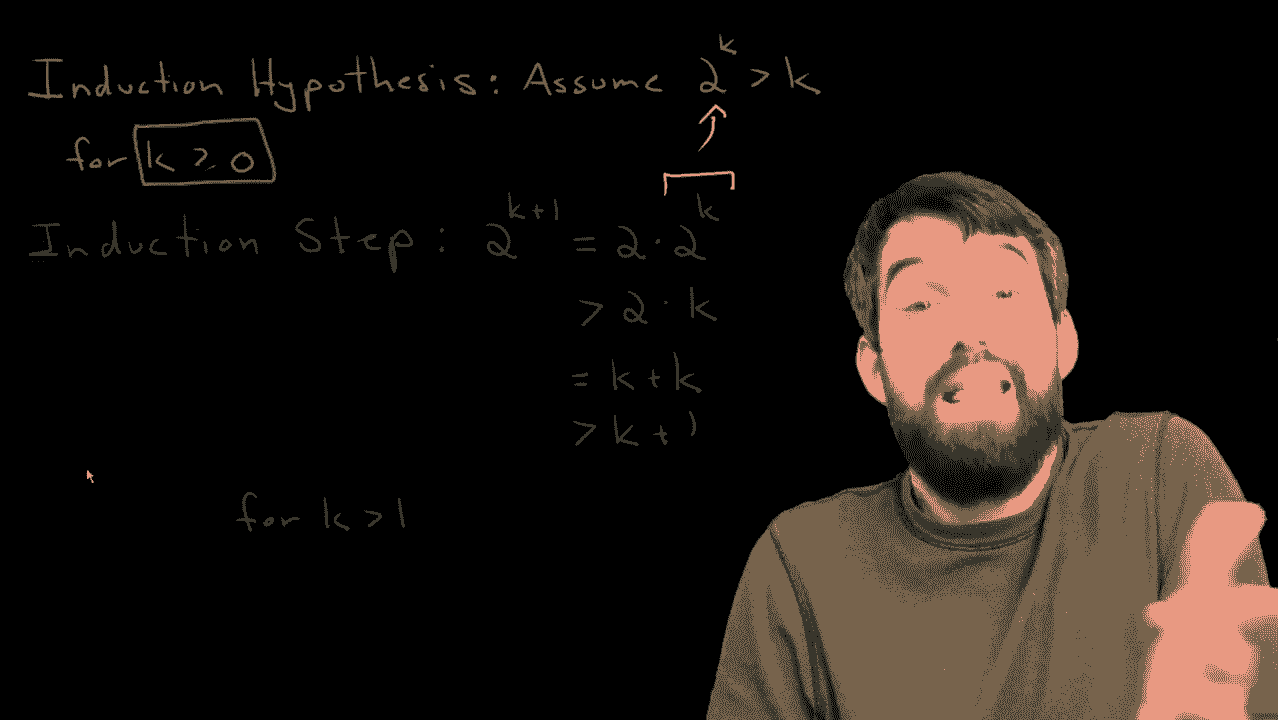 Induction Hypothesis: Assume 2^k > k
for k ≥ 0
Induction Step: 2^{k+1} = 2·2^k
> 2·k
= k+k
> k+1
for k > 1